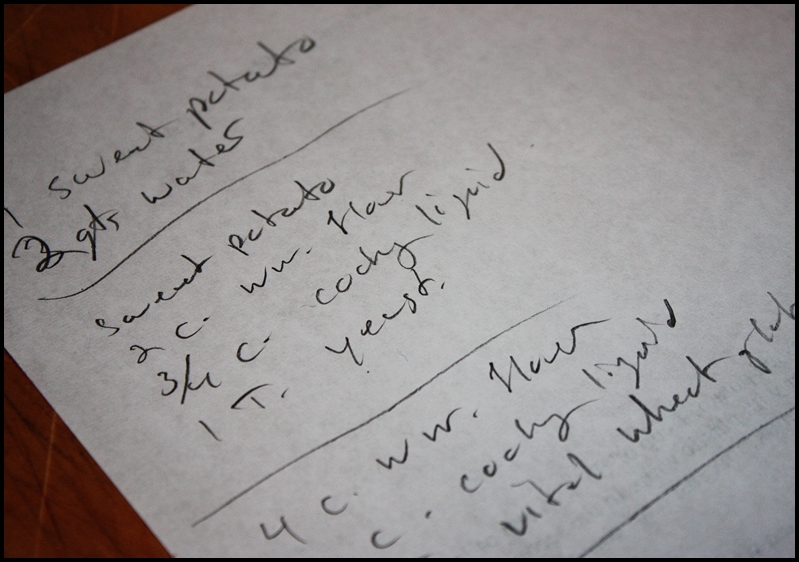 1 sweet potato
qts water
sweet potato
2 c. ww. flour
3/4 c. cookg liquid
1 T. yeast.
4 c. ww. flour
c. cookg liquid
vital wheat glut